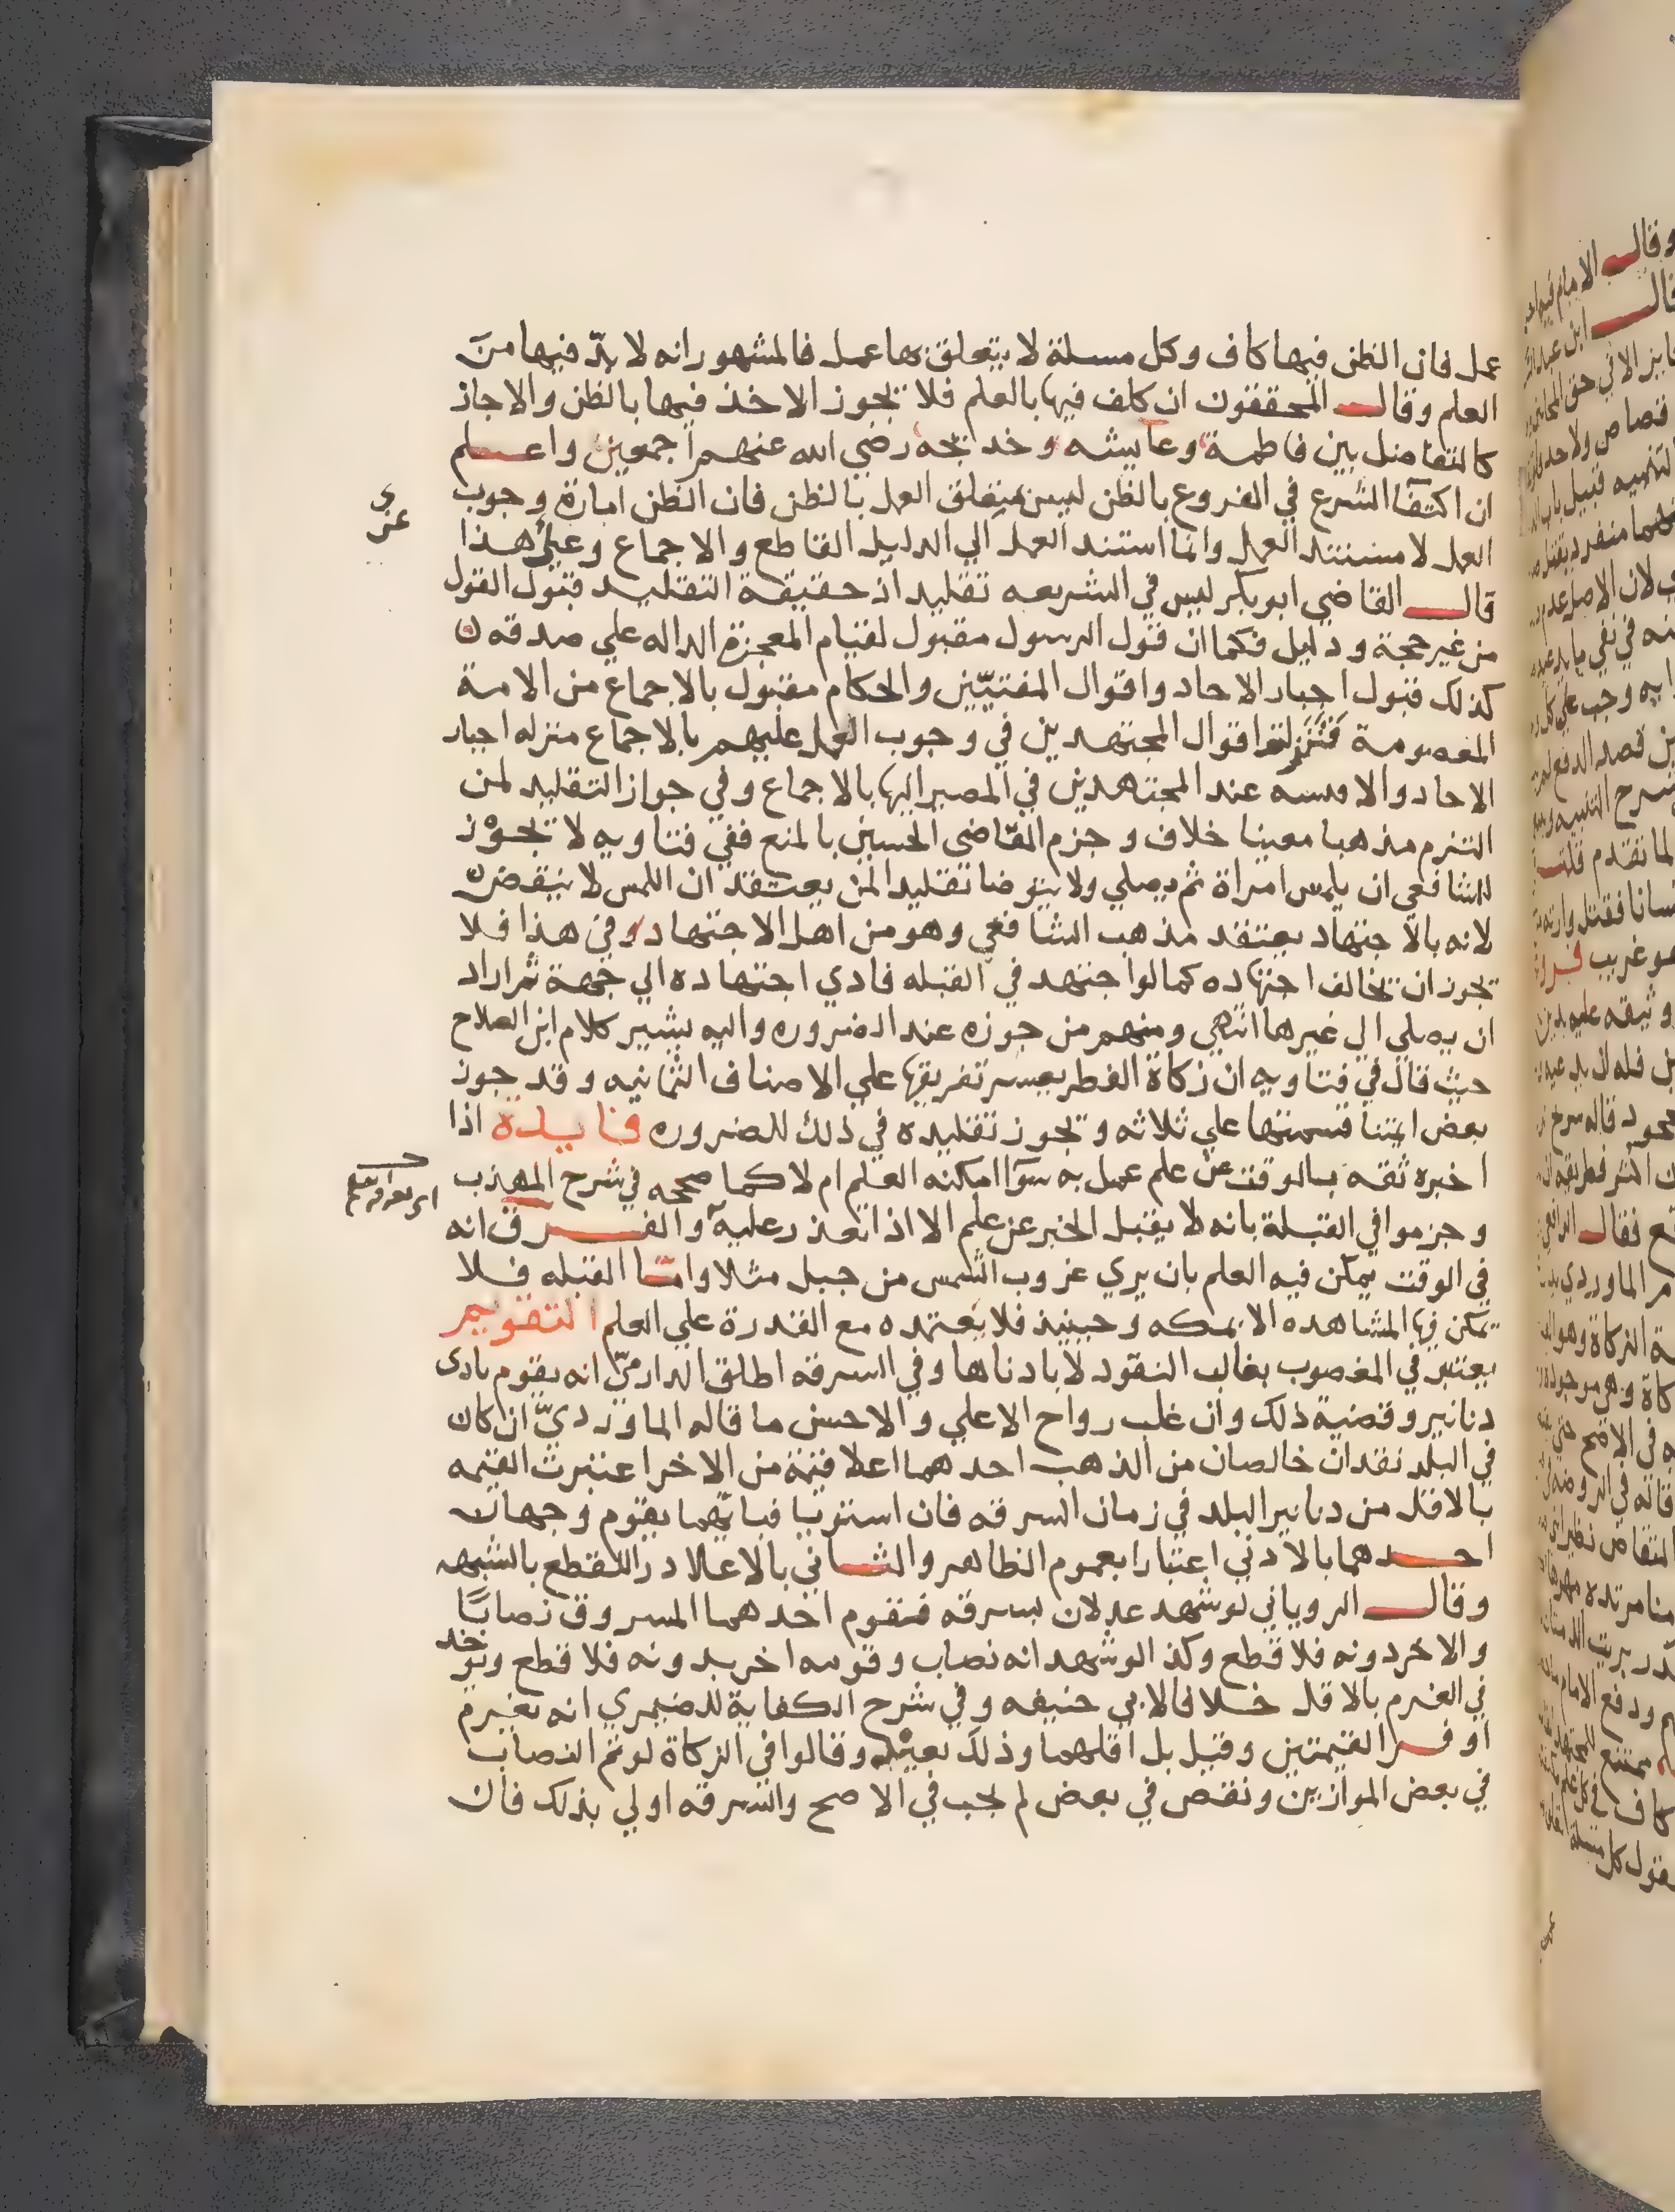 عمل فان الظن فيها كاف وكل مسلة لا يتعلق بها عمل فالمشهور انه لا بدّ فيها من
العلم وقال المحققون ان كلف فيها بالعلم فلا يجوز الاخذ فيها بالظن والا جاز
كالتفاضل بين فاطمة وعايشه وخديجه رضي الله عنهم اجمعين واعلم
ان اكتفا الشرع في الفروع بالظن ليس العمل بالظن فان الظن امارة وجوب
العمل لا مستند العمل وانما استند العمل الي الدليل القاطع والاجماع وعلي هذا
قال القاضي ابو بكر ليس في الشريعه تقليد اذ حقيقة التقليد قبول القول
من غير حجة ودليل فكما ان قول الرسول مقبول لقيام المعجزة الداله علي صدقه
كذلك قبول اخبار الاحاد واقوال المفتيين والحكام مقبول بالاجماع من الامة
المعصومة اقوال المجتهدين في وجوب العمل عليهم بالاجماع منزله اخبار
الاحاد والاقيسه عند المجتهدين في المصير اليها بالاجماع وفي جواز التقليد لمن
التزم مذهبا معينا خلاف وجزم القاضي الحسين بالمنع ففي فتاويه لا يجوز
للشافعي ان يلمس امراة ثم يصلي ولا يتوضا تقليدا لمن يعتقد ان اللمس لا ينقض
لانه بالاجتهاد يعتقد مذهب الشافعي وهو من اهل الاجتهاد وفي هذا فلا
يجوز ان يخالف اجتهاده كما لو اجتهد في القبله فادي اجتهاده الي جهة ثم اراد
ان يصلي الي غيرها انتهي ومنهم من جوزه عند الضروره واليه يشير كلام ابن الصلاح
حيث قال في فتاويه ان زكاة الفطر يعسر تفريقها علي الاصناف الثمانيه وقد جوز
بعض ايمتنا قسمتها علي ثلاثه ويجوز تقليده في ذلك للضروره فايدة اذا
اخبره ثقه بالوقت عن علم عمل به سوآ امكنه العلم ام لا كما صححه في شرح المهذب
وجزموا في القبلة بانه لا يقبل الخبر عن علم الا اذا تعذر عليه والفرق انه
في الوقت يمكن فيه العلم بان يري غروب الشمس من جبل مثلا واما القبله فلا
يمكن فيها المشاهده الا بمكه وحينيذ فلا يعتمده مع القدرة علي العلم التقويم
يعتبر في المغصوب بغالب النقود لا بادناها وفي السرقه اطلق الدارميّ انه يقوم بادى
دنانير وقضية ذلك وان غلب رواج الاعلي والاحسن ما قاله الماورديّ ان كان
في البلد نقدان خالصان من الذهب احدهما اعلا قيمة من الاخر اعتبرت القيمه
بالاقل من دنانير البلد في زمان السرقه فان استويا فبايّهما يقوم وجهان
احدهما بالادني اعتبارا بعموم الظاهر والثاني بالاعلا درا للقطع بالشبهه
وقال الروياني لو شهد عدلان بسرقه فقوم احدهما المسروق نصابًا
والاخر دونه فلا قطع وكذا لو شهدا انه نصاب وقومه اخر بدونه فلا قطع ويوخد
في الغرم بالاقل خلافا لابي حنيفه وفي شرح الكفاية للصيمري انه يغرم
اوفر القيمتين وقيل بل اقلهما وذلك وقالوا في الزكاة لو تم النصاب
في بعض الموازين ونقص في بعض لم يجب في الاصح والسرقه اولي بذلك فان